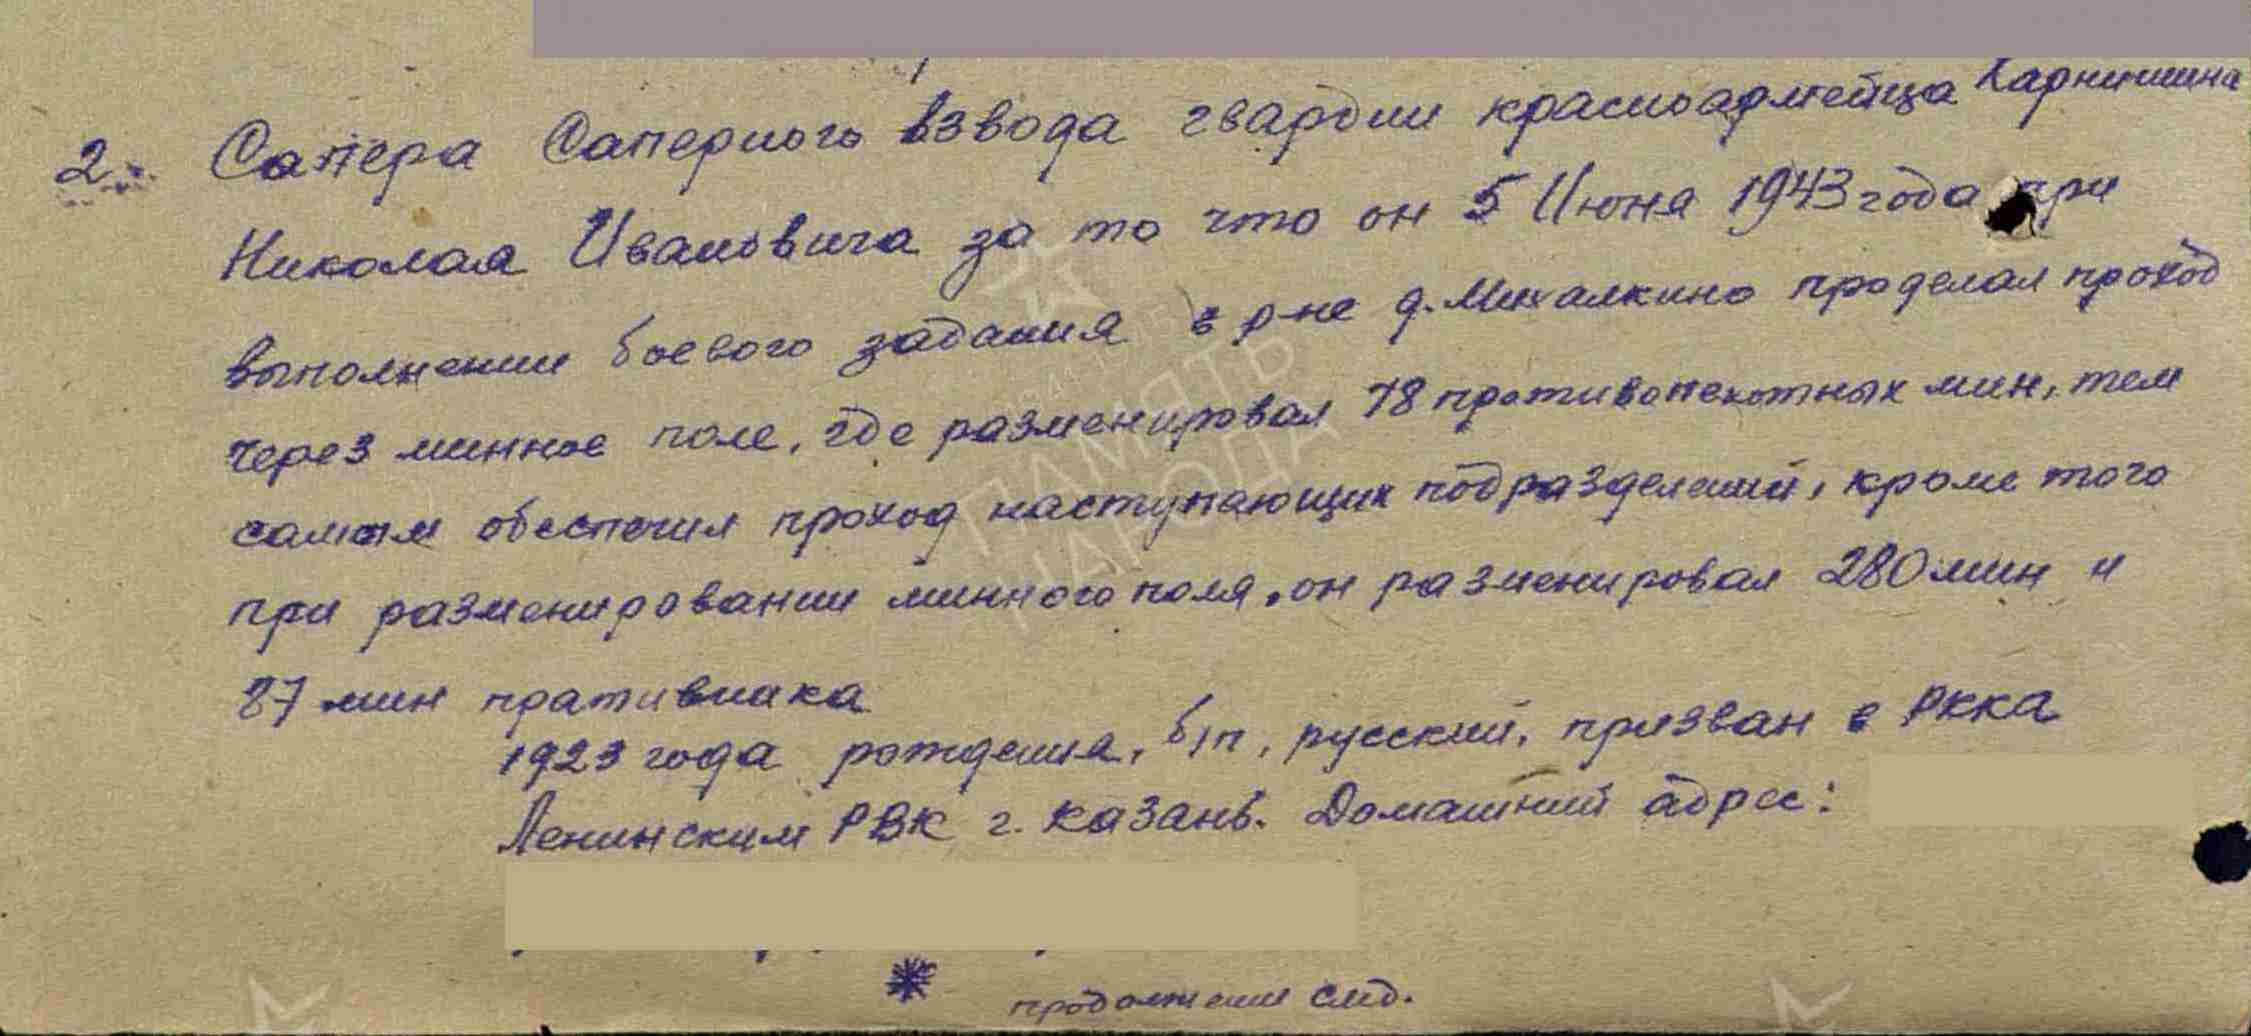 2. Сапера Саперного взвода гвардии красноармейца Карнишина
Николая Ивановича за то что он 5 Июня 1943 года при
выполнении боевого задания в р-не д. Михалкино проделал проход
через минное поле, где разменировал 78 противопехотных мин, тем
самым обеспечил проход наступающих подразделений, кроме того
при разменировании минного поля, он разменировал 280 мин и
87 мин пративника
1923 года рождения, б/п, русский, призван в РККА
Ленинским РВК г. Казань. Домашний адрес:
продолжение след.
ПАМЯТЬ
НАРОДА